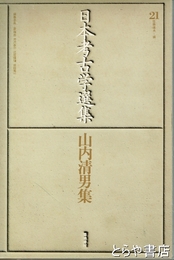 21
日本考古学選集
山内清男集
築地書館
とらや書店